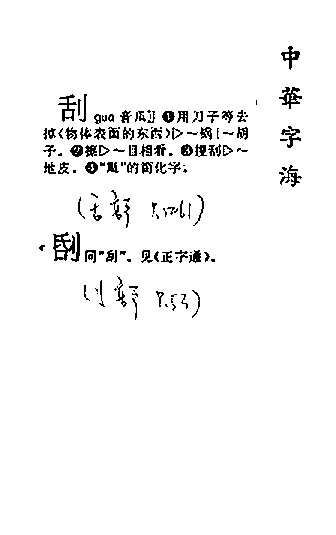 中華字海
刮 guā 音瓜 ❶用刀子等去
掉(物体表面的东西)▷～锅|～胡
子。❷擦▷～目相看。❸搜刮▷～
地皮。❹“颳”的简化字。
(舌部
同“刮”。见《正字通》。
(刂部 P.53)